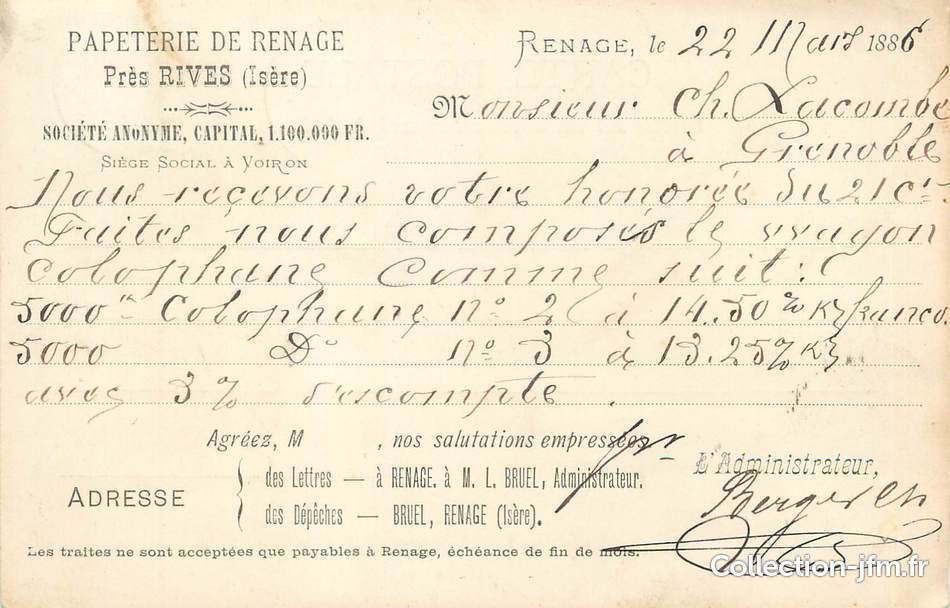 PAPETERIE DE RENAGE
Près RIVES (Isère)
SOCIÉTÉ ANONYME, CAPITAL, 1.100.000 FR.
SIÈGE SOCIAL À VOIRON
RENAGE, le 22 Mars 1886
Monsieur Ch. Lacombe
à Grenoble
Nous recevons votre honorée du 21 ct.
Faites nous composés le wagon
colophane comme suit :
5000 k Colophane No 2 à 14.50 % k franco.
5000 Do No 3 à 13.25 % k
avec 3 % d'escompte.
Agréez, M , nos salutations empressées.
ADRESSE
des Lettres — à RENAGE, à M. L. BRUEL, Administrateur.
des Dépêches — BRUEL, RENAGE (Isère).
pr L'Administrateur,
Berger
Les traites ne sont acceptées que payables à Renage, échéance de fin de mois.
Collection-jfm.fr